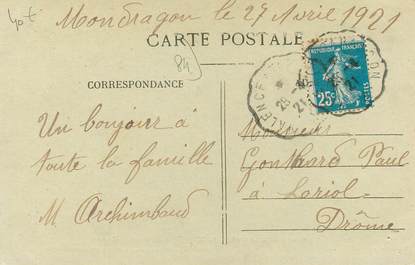 40 t
Mondragon le 27 Avril 1921
CARTE POSTALE
P4
CORRESPONDANCE
Un bonjour à
toute la famille
M Archimbaud
REPUBLIQUE FRANÇAISE
25c
POSTES
VALENCE
21
Monsieur
Gonthard Paul
à Loriol
Drôme